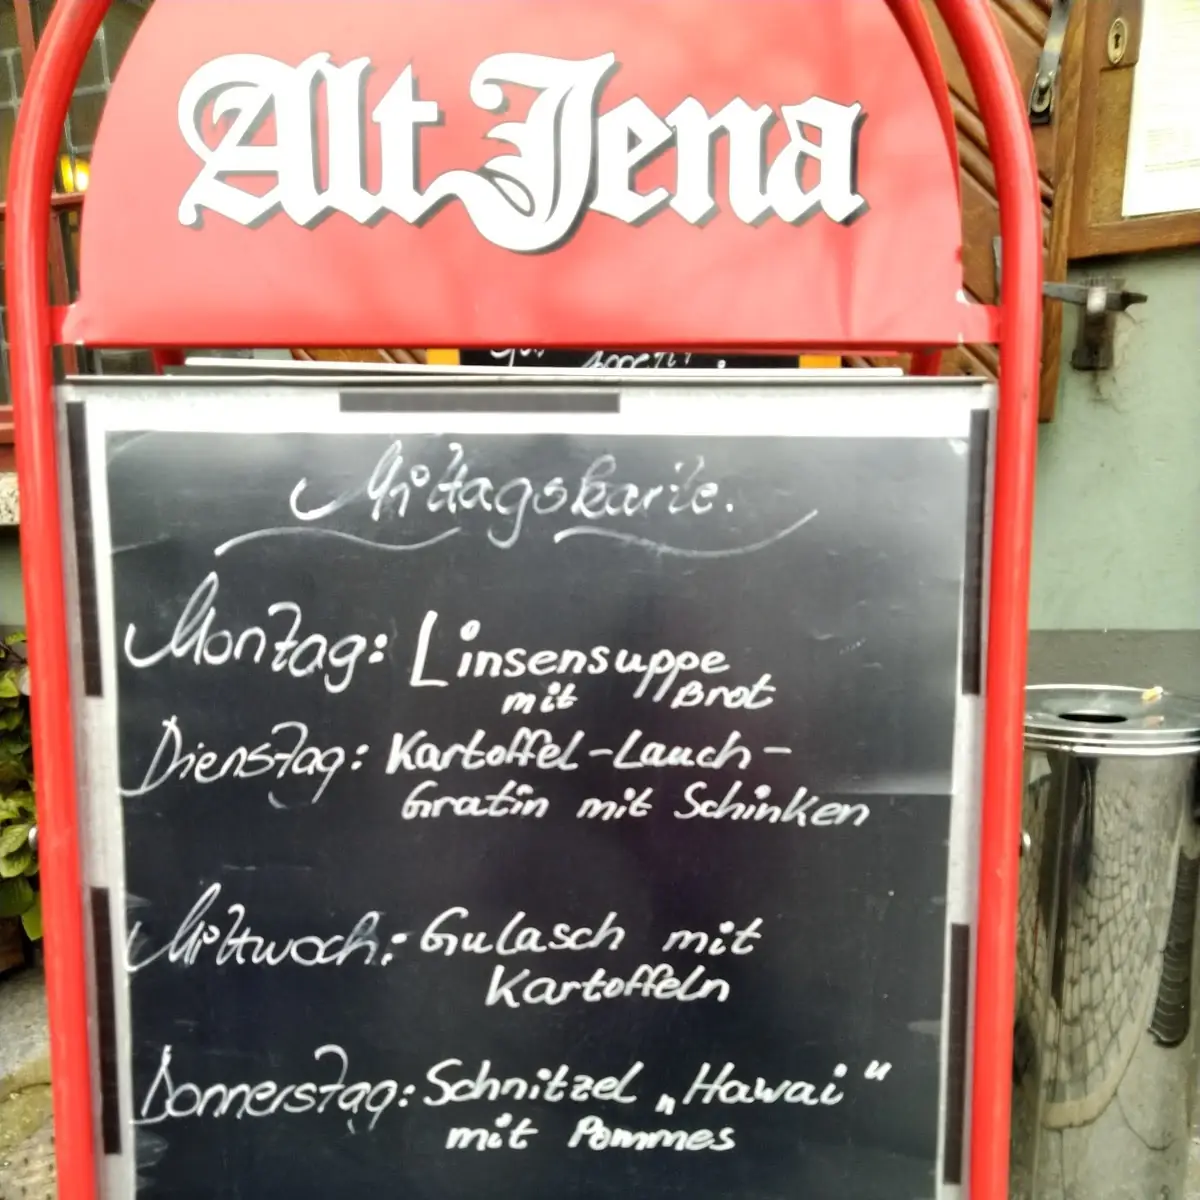 Alt Jena
Mittagskarte.
Montag: Linsensuppe
mit Brot
Dienstag: Kartoffel-Lauch-
Gratin mit Schinken
Mittwoch: Gulasch mit
Kartoffeln
Donnerstag: Schnitzel „Hawai“
mit Pommes